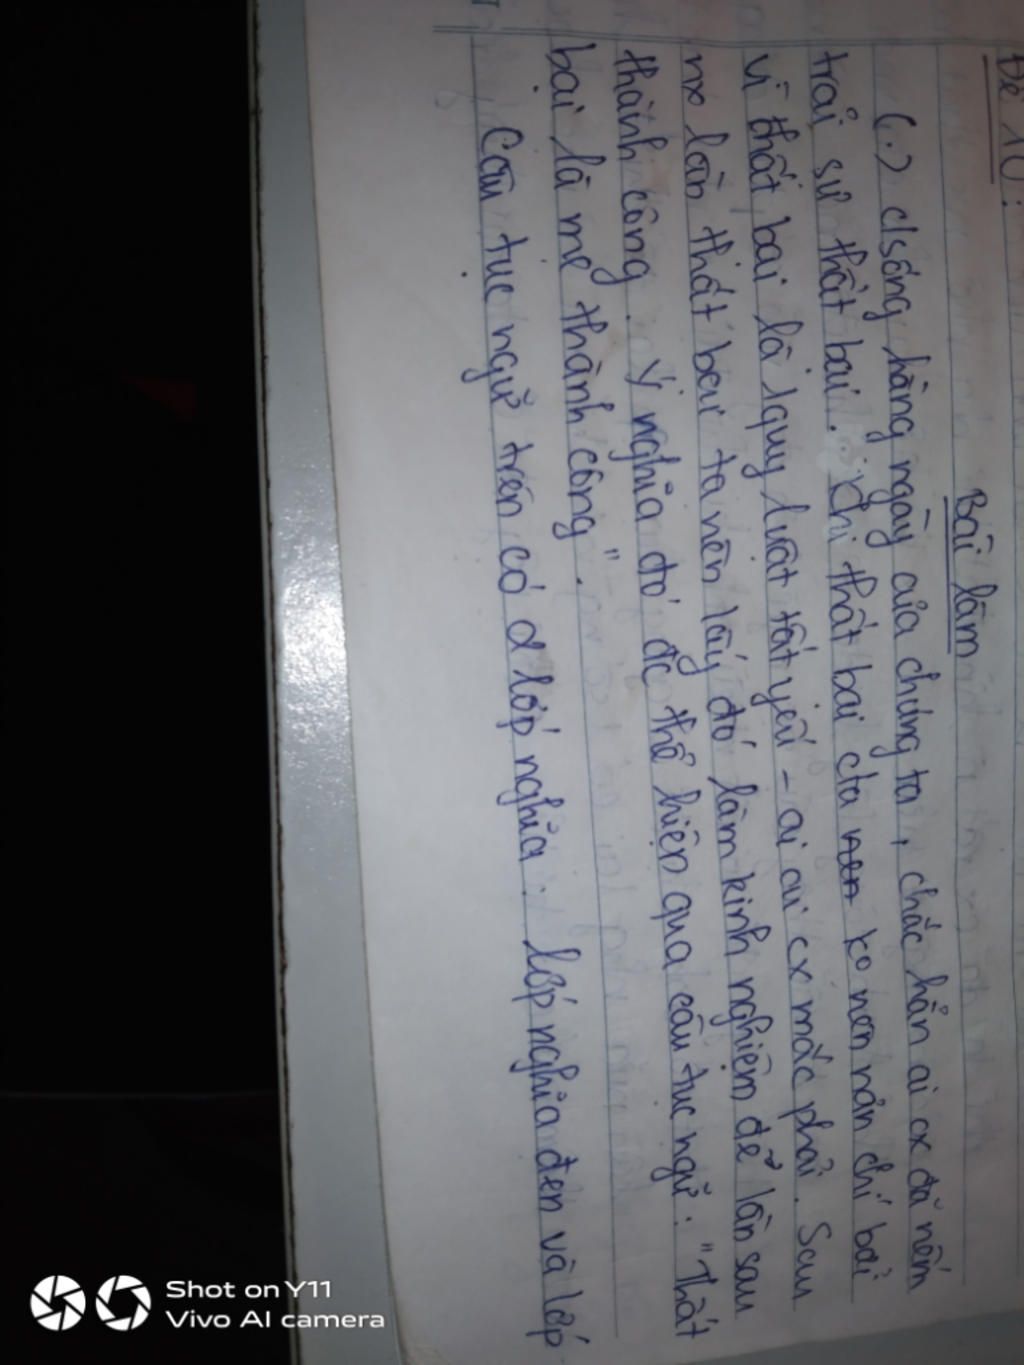 Đề 10:
Bài làm
(.) c/sống hàng ngày của chúng ta, chắc hẳn ai cx đã nếm
trải sự thất bại. Khi thất bại cta ko nên nản chí bởi
vì thất bại là quy luật tất yếu - ai ai cx mắc phải. Sau
mx lần thất bại ta nên lấy đó làm kinh nghiệm để lần sau
thành công. Ý nghĩa đó đc thể hiện qua câu tục ngữ: "Thất
bại là mẹ thành công".
Câu tục ngữ trên có 2 lớp nghĩa: lớp nghĩa đen và lớp
Shot on Y11
Vivo AI camera